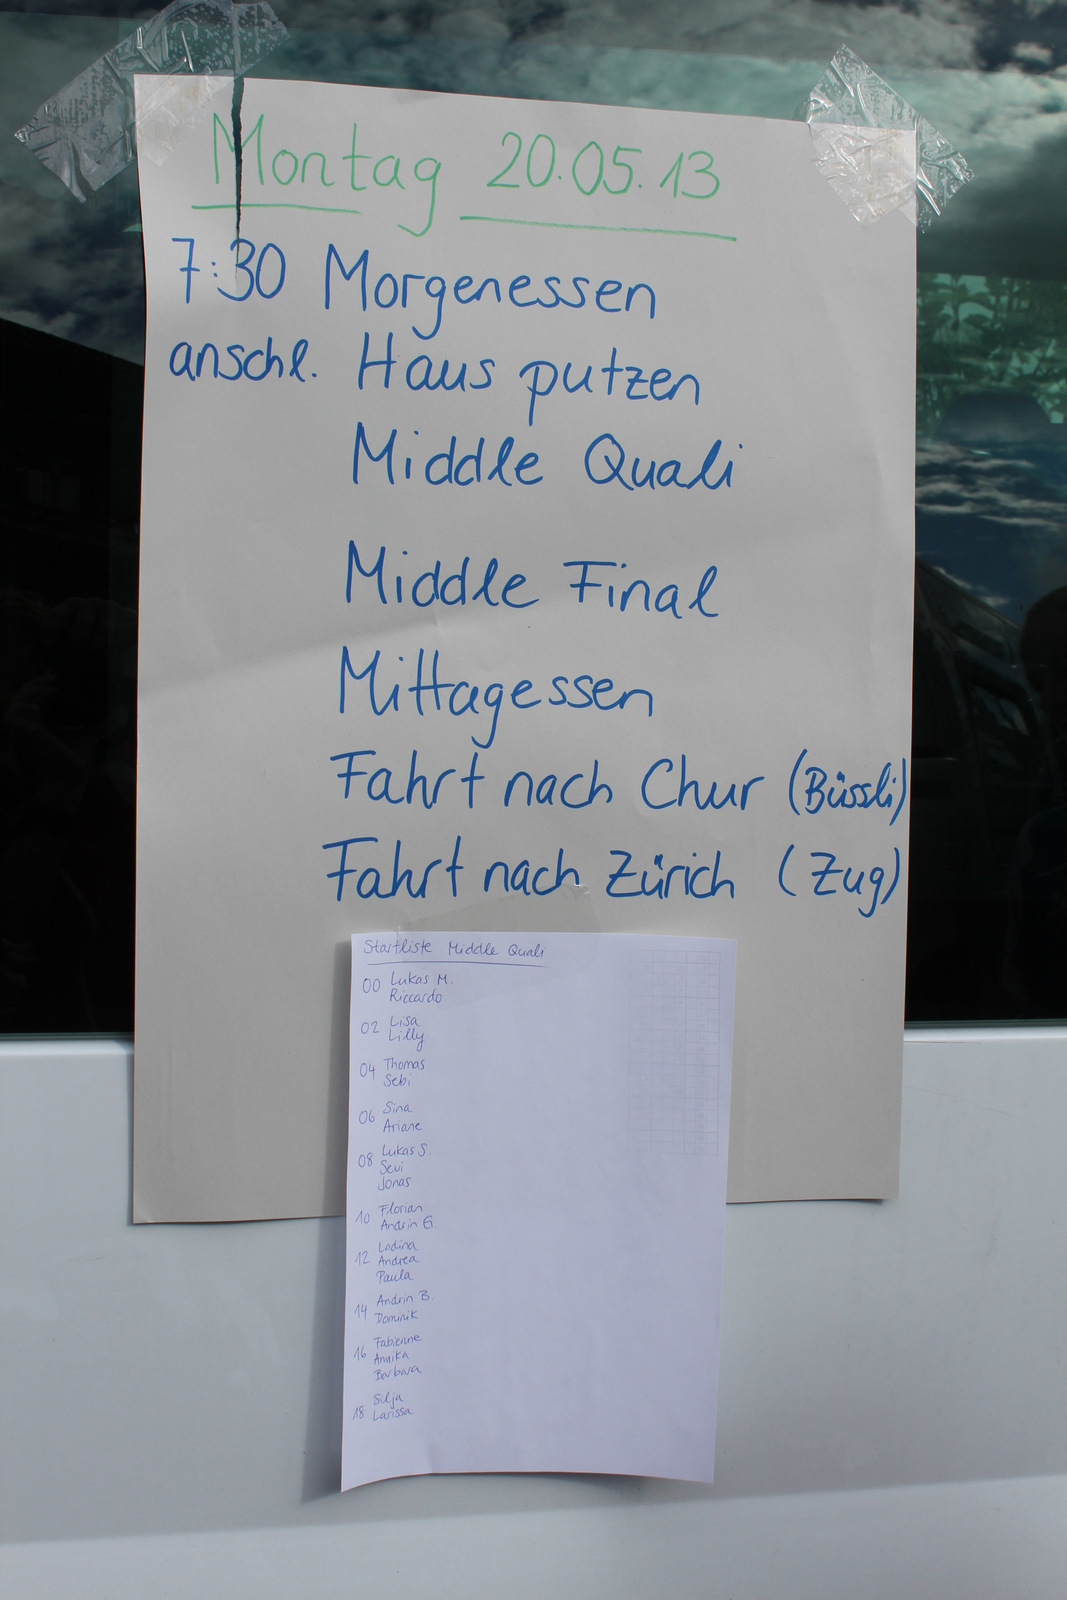 Montag 20.05.13
7:30 Morgenessen
anschl. Haus putzen
Middle Quali
Middle Final
Mittagessen
Fahrt nach Chur (Büssli)
Fahrt nach Zürich (Zug)
Startliste Middle Quali
00 Lukas M.
Riccardo
02 Lisa
Lilly
04 Thomas
Sebi
06 Sina
Ariane
08 Lukas S.
Sevi
Jonas
10 Florian
Andrin G.
12 Ladina
Andrea
Paula
14 Andrin B.
Dominik
16 Fabienne
Annika
Barbara
18 Silja
Larissa